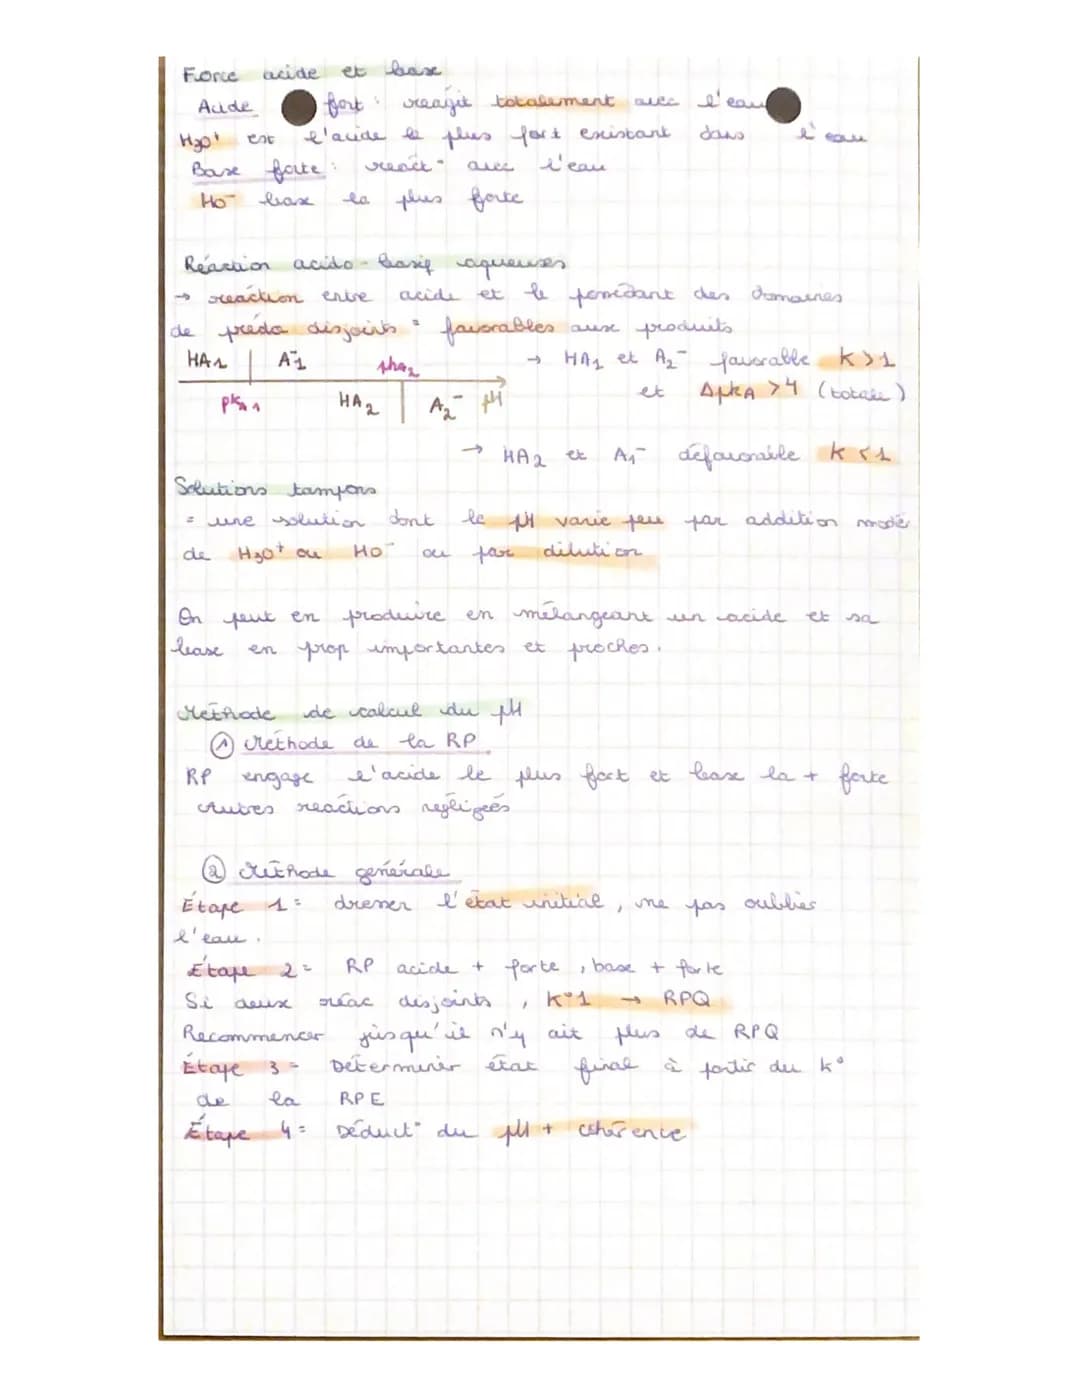 Force acide et base
Acide fort : réagit totalement avec l'eau
H3O+ est l'acide le plus fort existant dans l'eau
Base forte : réact° avec l'eau
HO- base la plus forte
Réaction acido-basiq aqueuses
→ réaction entre acide et le possédant des domaines
de prédo disjoints = favorables aux produits
HA1 | A-1 pka2 → HA1 et A2- favorable K > 1
pkA1 HA2 | A2- pH et ΔpkA > 4 (totale)
→ HA2 et A1- défavorable K < 1
Solutions tampons
= une solution dont le pH varie peu par addition modér
de H3O+ ou HO- ou par dilution
On peut en produire en mélangeant un acide et sa
base en prop importantes et proches.
Méthode de calcul du pH
① Méthode de la RP
RP engage l'acide le plus fort et base la + forte
Autres réactions négligées
② Méthode générale
Étape 1 = dresser l'état initial, ne pas oublier
l'eau.
Étape 2 = RP acide + forte, base + forte
Si deux réac disjoints, K°1 → RPQ
Recommencer jusqu'il n'y ait plus de RPQ
Étape 3 = Déterminer état final à partir du K°
de la RPE
Étape 4 = Déduct° du pH + cohérence